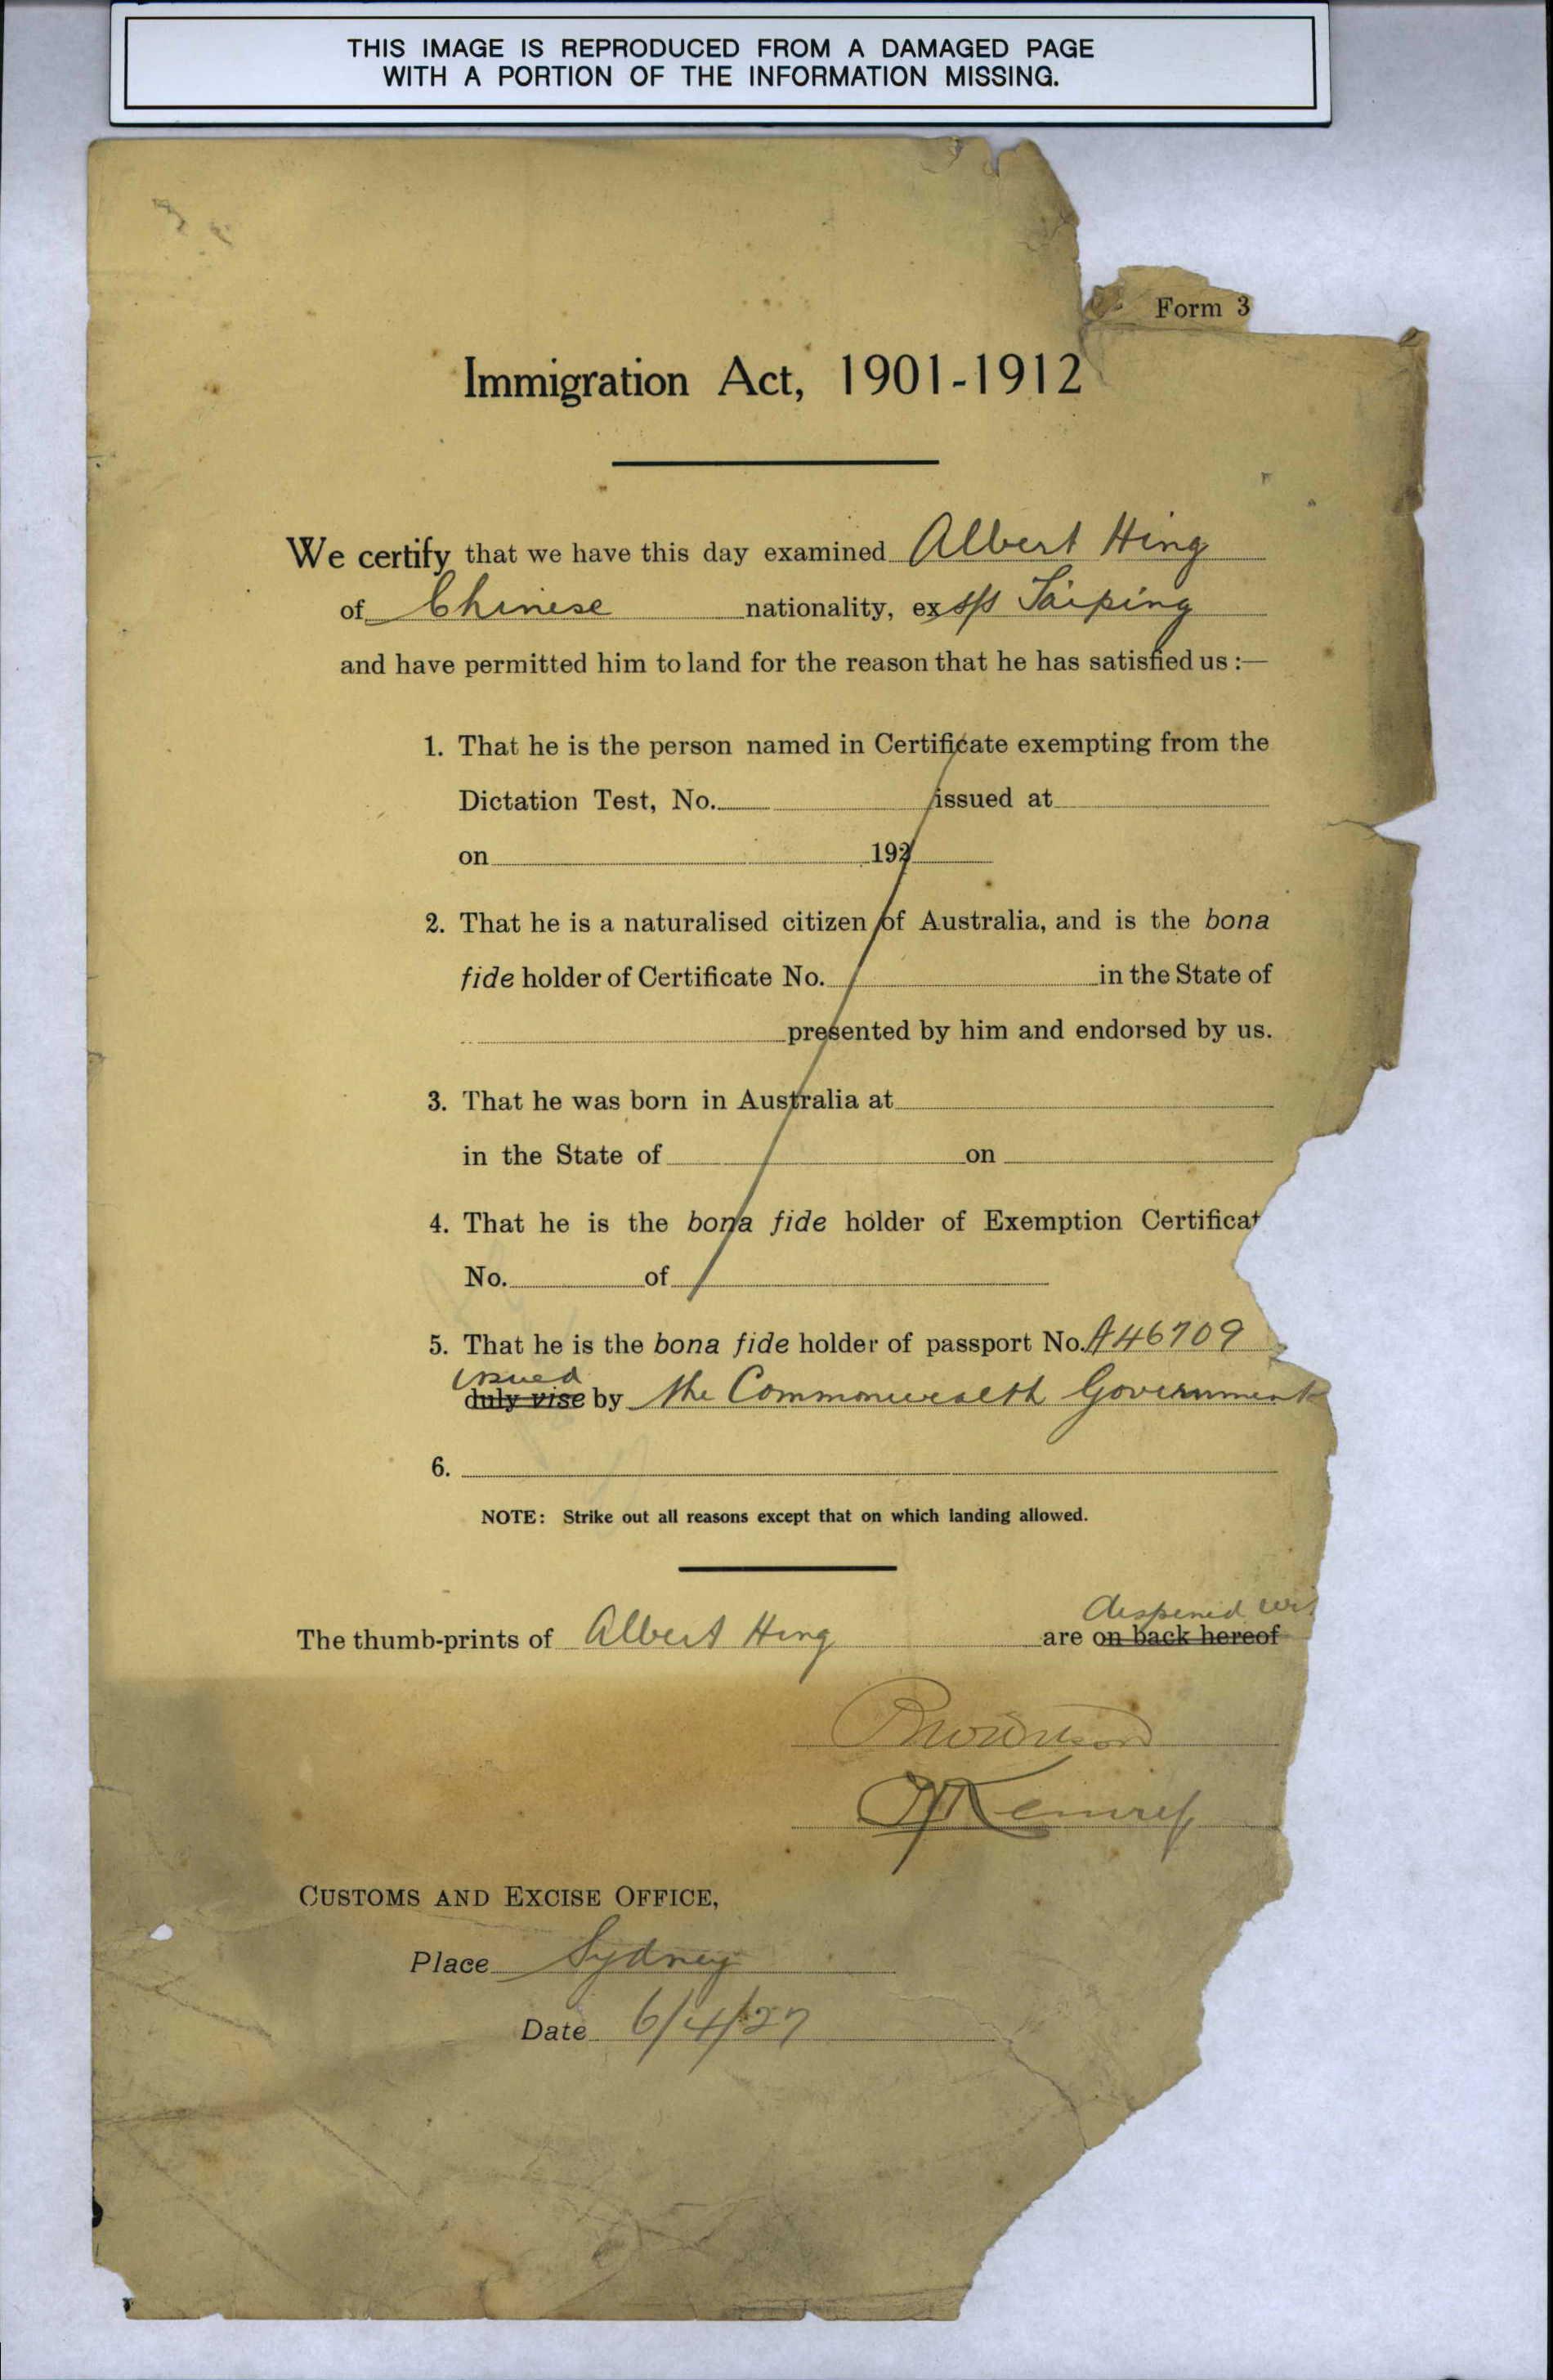 THIS IMAGE IS REPRODUCED FROM A DAMAGED PAGE
WITH A PORTION OF THE INFORMATION MISSING.
Form 3
Immigration Act, 1901-1912
We certify that we have this day examined Albert Hing
of Chinese nationality, ex s/s Taiping
and have permitted him to land for the reason that he has satisfied us :—
1. That he is the person named in Certificate exempting from the
Dictation Test, No. issued at
on 192
2. That he is a naturalised citizen of Australia, and is the bona
fide holder of Certificate No. in the State of
presented by him and endorsed by us.
3. That he was born in Australia at
in the State of on
4. That he is the bona fide holder of Exemption Certificat
No. of
5. That he is the bona fide holder of passport No. A46709
issued
duly vise by the Commonwealth Government
6.
NOTE: Strike out all reasons except that on which landing allowed.
dispensed wi
The thumb-prints of Albert Hing are on back hereof
CUSTOMS AND EXCISE OFFICE,
Place Sydney
Date 6/4/27